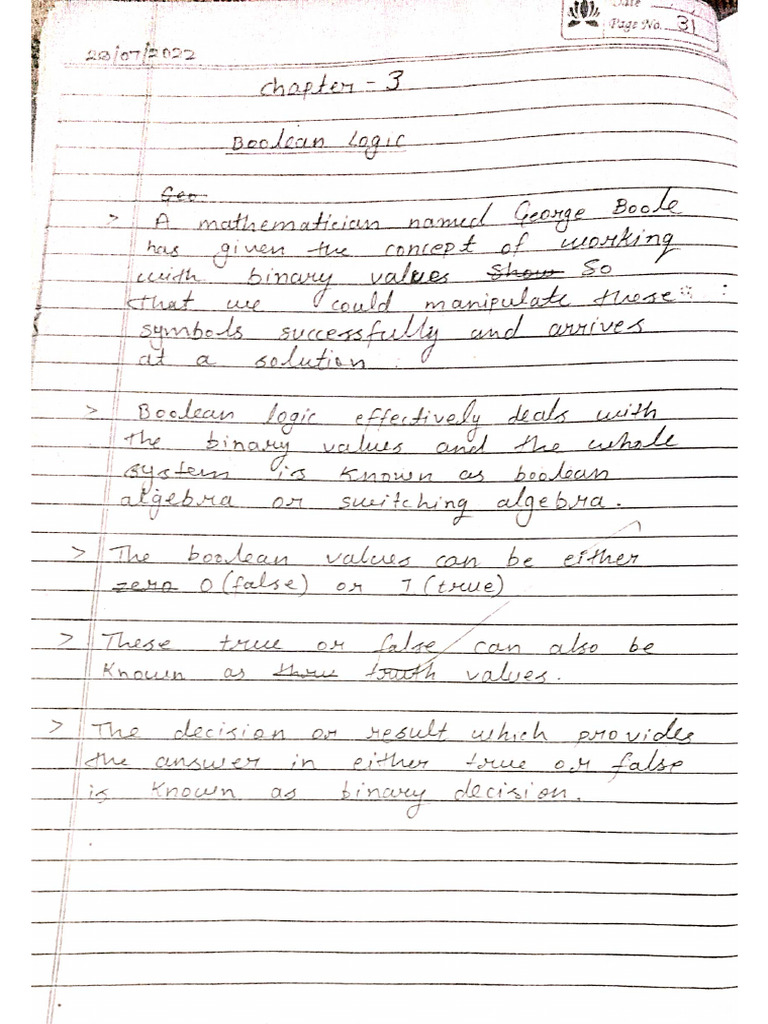 Date
Page No. 31
28/07/2022
Chapter - 3
Boolean Logic
Geo
> A mathematician named George Boole
has given the concept of working
with binary values Show So
that we could manipulate these
symbols successfully and arrives
at a solution.
> Boolean logic effectively deals with
the binary values and the whole
system is known as boolean
algebra or switching algebra.
> The boolean values can be either
zero 0 (false) or 1 (true)
> These true or false can also be
known as true truth values.
> The decision or result which provides
the answer in either true or false
is known as binary decision.